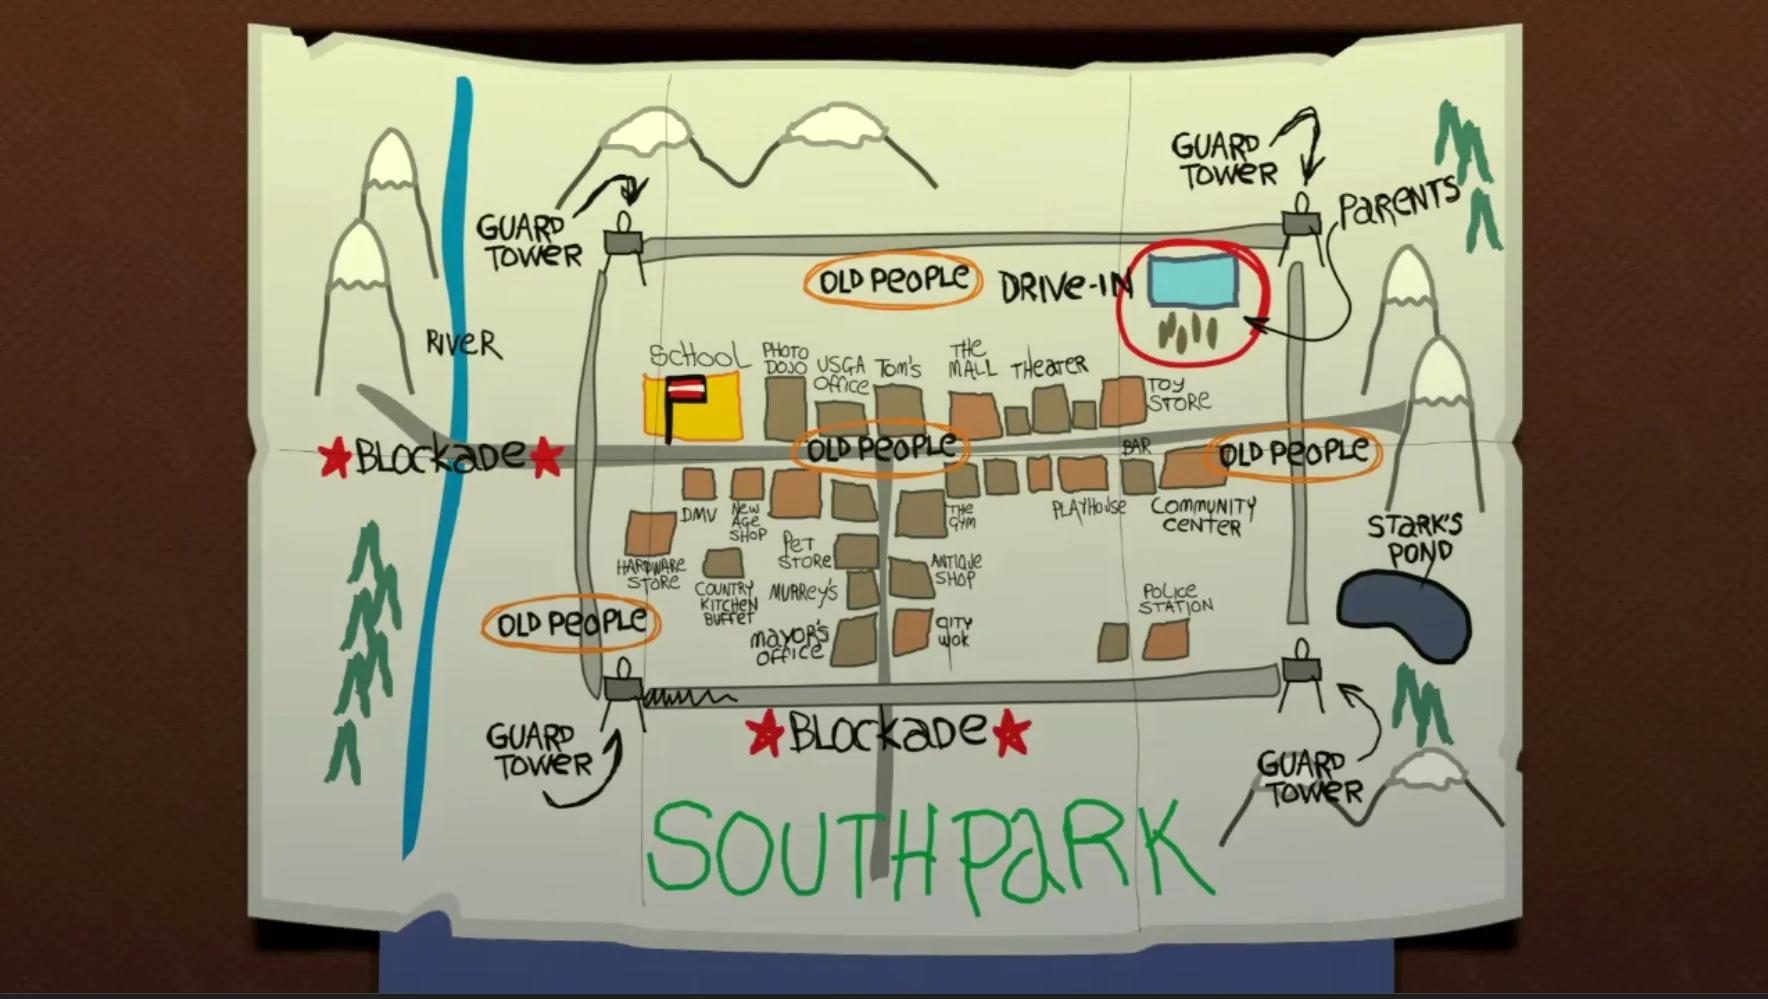 GUARD
TOWER
PARENTS
GUARD
TOWER
OLD PEOPLE
DRIVE-IN
RIVER
SCHOOL
PHOTO
DOJO
USGA
OFFICE
TOM'S
THE
MALL
THEATER
TOY
STORE
BLOCKADE
OLD PEOPLE
BAR
OLD PEOPLE
DMV
NEW
AGE
SHOP
THE
GYM
PLAYHOUSE
COMMUNITY
CENTER
STARK'S
POND
HARDWARE
STORE
PET
STORE
COUNTRY
KITCHEN
BUFFET
MURREY'S
ANTIQUE
SHOP
POLICE
STATION
OLD PEOPLE
MAYOR'S
OFFICE
CITY
WOK
GUARD
TOWER
BLOCKADE
GUARD
TOWER
SOUTH PARK